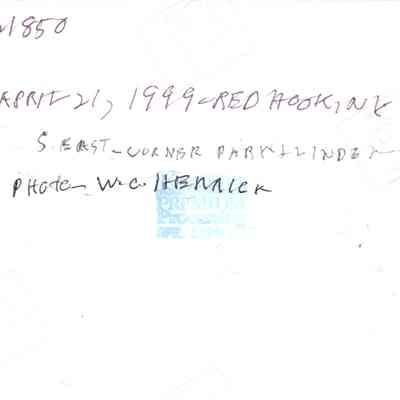 ~1850
APRIL 21, 1999-RED HOOK, NY
S. EAST-CORNER PARK & LINDEN
PHOTO- W.C. HERRICK
PREMIUM